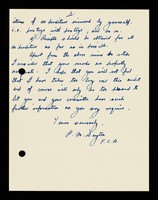 2.
items of expenditure incurred by yourself.
i.e. postage with postage, and so on.
4. Receipts should be obtained for all
expenditure as far as is possible.
Apart from the above members to state
I consider that your records are perfectly
correct. I hope that you will not feel
that I have taken too long over this audit
and of course will only be too pleased to
let you and your committee have such
further information as you may require.
Yours sincerely,
P. M.
F.C.A.